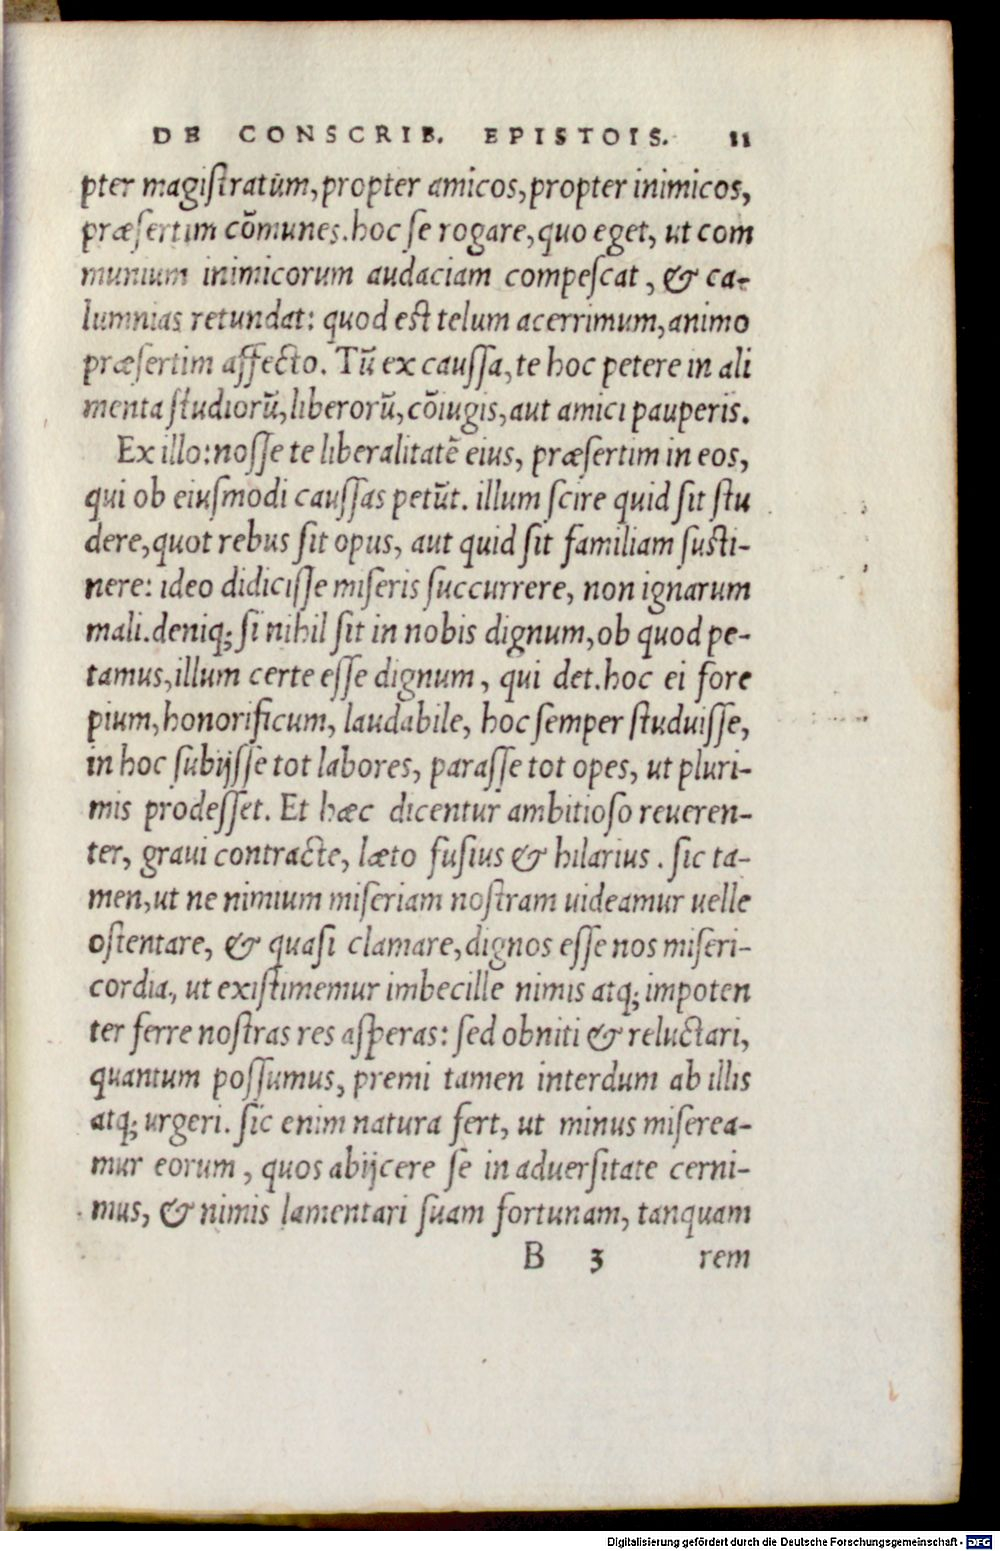 DE CONSCRIB. EPISTOIS. 11
pter magiſtratum, propter amicos, propter inimicos,
præſertim cōmunes. hoc ſe rogare, quo eget, ut com
munium inimicorum audaciam compeſcat, & ca-
lumnias retundat: quod eſt telum acerrimum, animo
præſertim affecto. Tū ex cauſſa, te hoc petere in ali
menta ſtudiorū, liberorū, cōiugis, aut amici pauperis.
Ex illo: noſſe te liberalitatē eius, præſertim in eos,
qui ob eiuſmodi cauſſas petūt. illum ſcire quid ſit ſtu
dere, quot rebus ſit opus, aut quid ſit familiam ſuſti-
nere: ideo didiciſſe miſeris ſuccurrere, non ignarum
mali. deniq; ſi nihil ſit in nobis dignum, ob quod pe-
tamus, illum certe eſſe dignum, qui det. hoc ei fore
pium, honorificum, laudabile, hoc ſemper ſtuduiſſe,
in hoc ſubijſſe tot labores, paraſſe tot opes, ut pluri-
mis prodeſſet. Et hæc dicentur ambitioſo reueren-
ter, graui contracte, læto fuſius & hilarius. ſic ta-
men, ut ne nimium miſeriam noſtram uideamur uelle
oſtentare, & quaſi clamare, dignos eſſe nos miſeri-
cordia, ut exiſtimemur imbecille nimis atq; impoten
ter ferre noſtras res aſperas: ſed obniti & reluctari,
quantum poſſumus, premi tamen interdum ab illis
atq; urgeri. ſic enim natura fert, ut minus miſerea-
mur eorum, quos abijcere ſe in aduerſitate cerni-
mus, & nimis lamentari ſuam fortunam, tanquam
B 3 rem
Digitalisierung gefördert durch die Deutsche Forschungsgemeinschaft - DFG